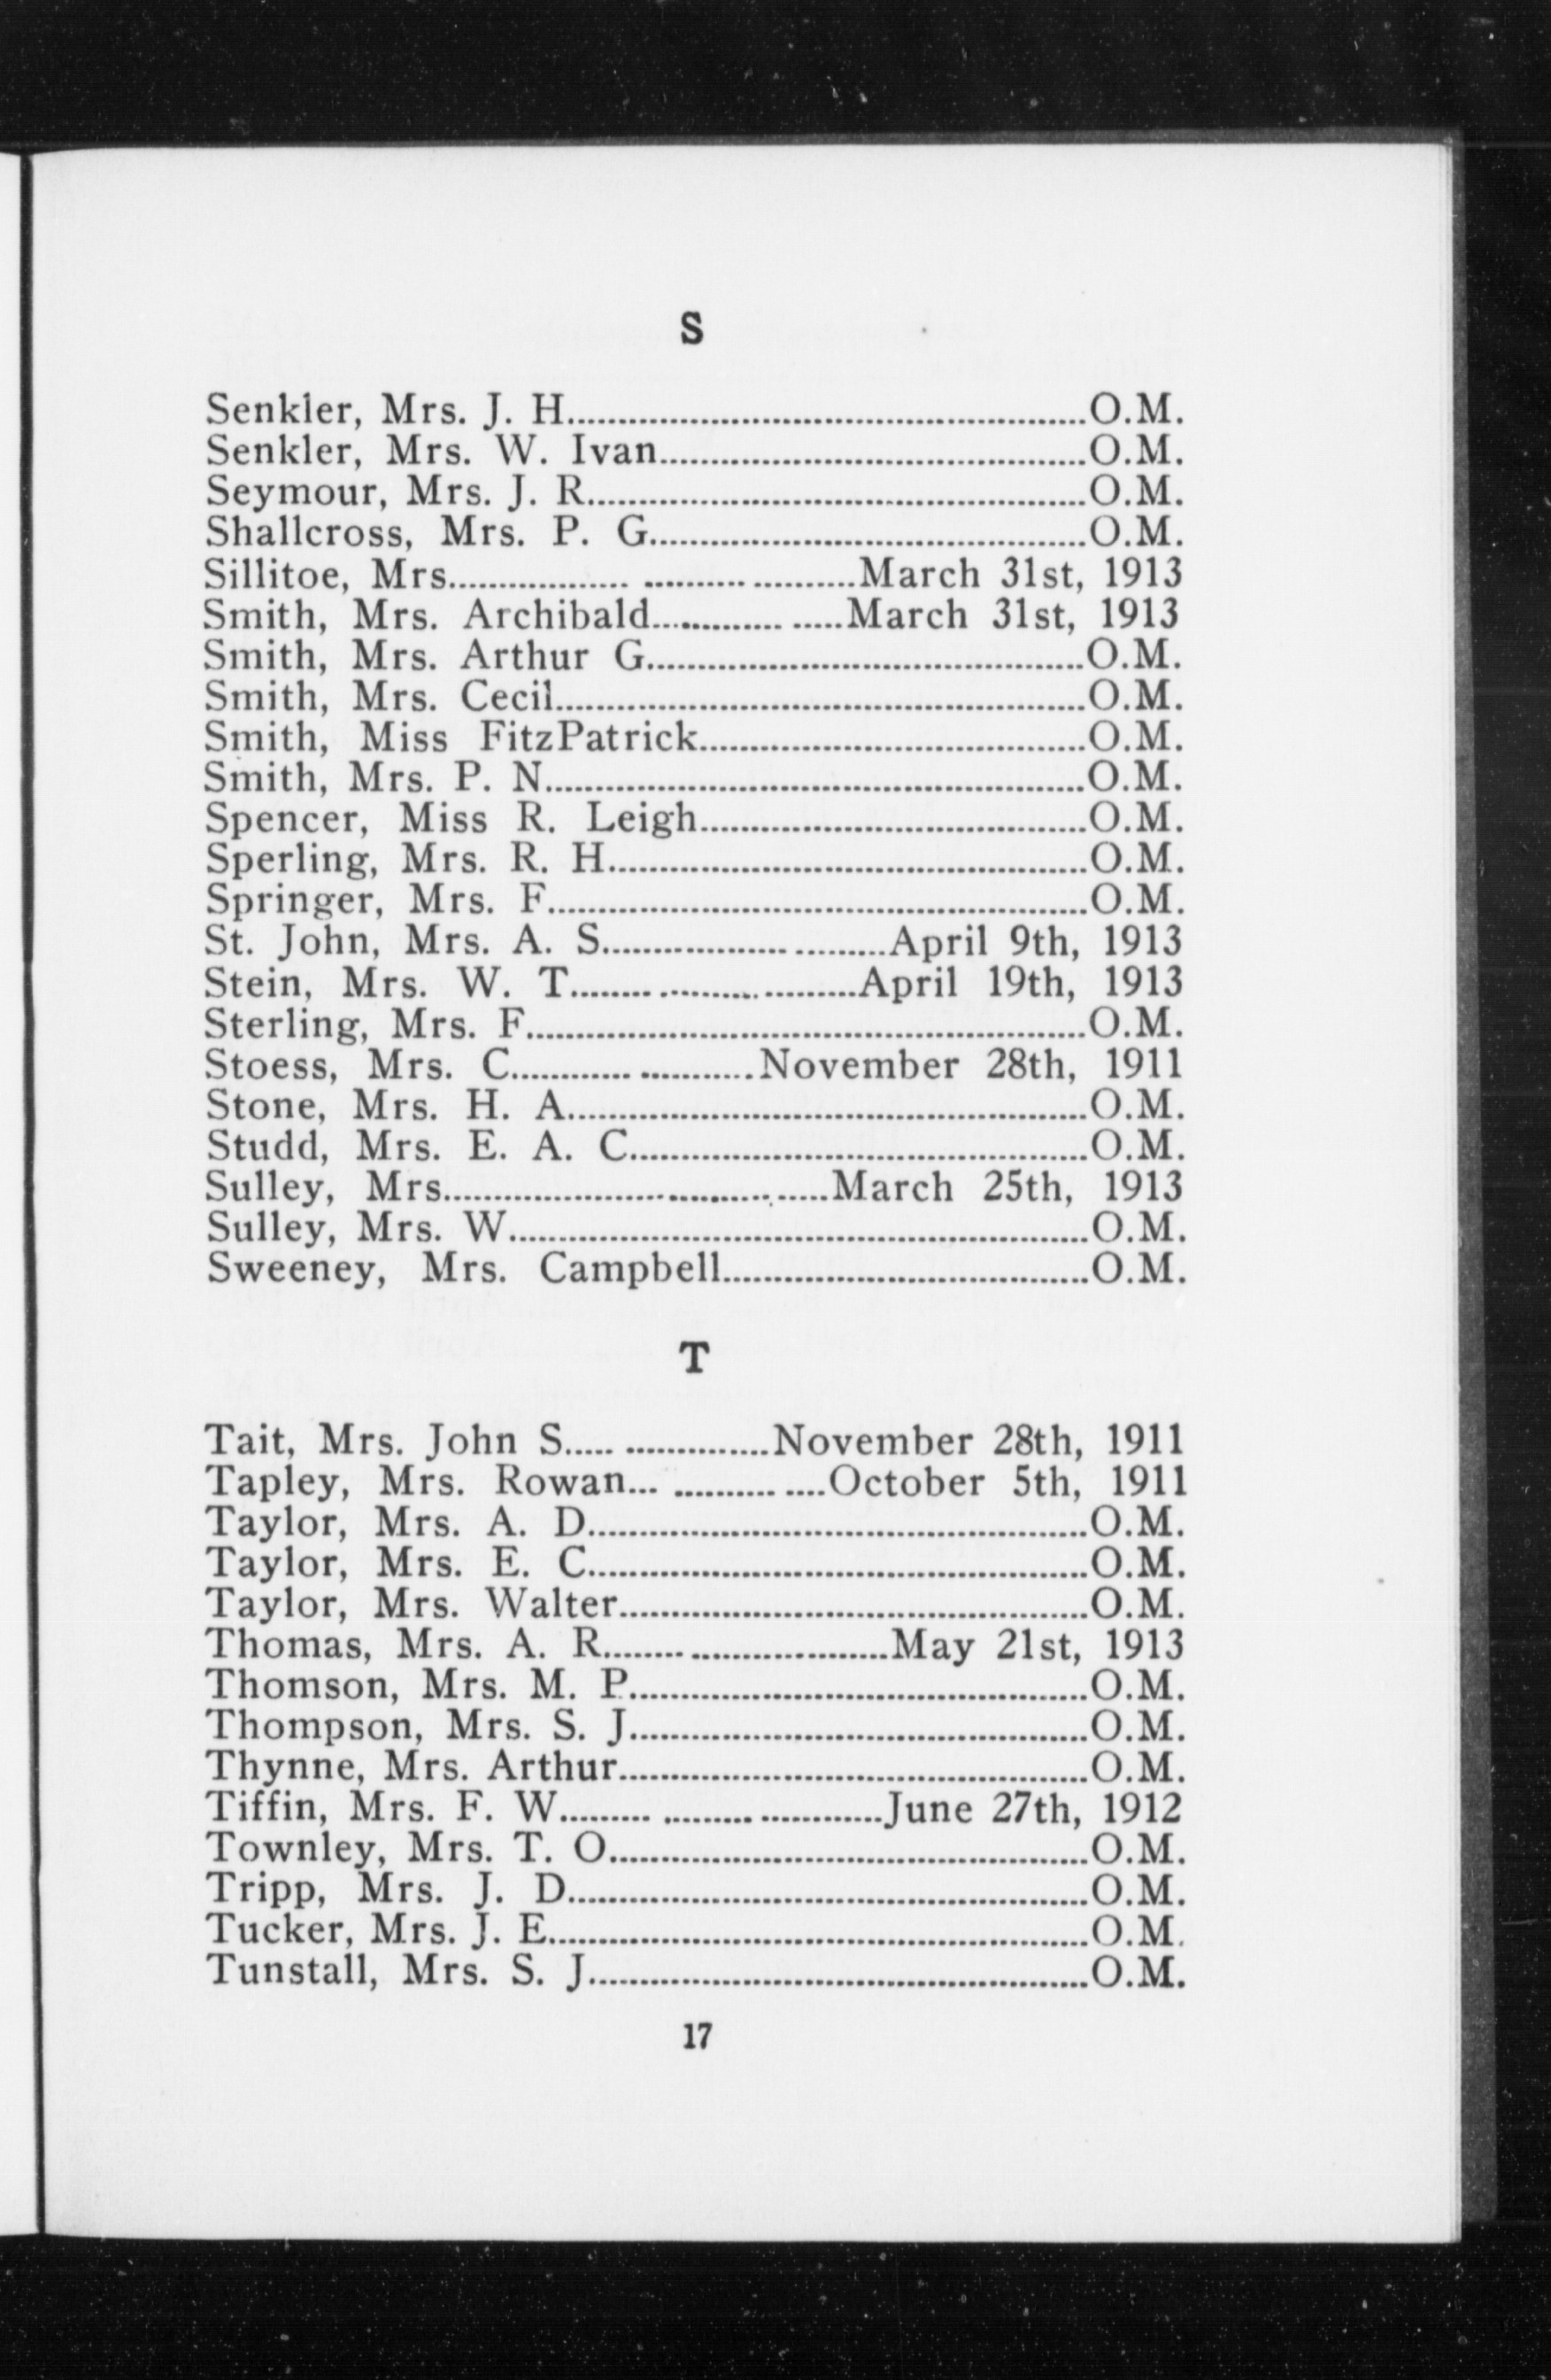 S
Senkler, Mrs. J. H. O.M.
Senkler, Mrs. W. Ivan O.M.
Seymour, Mrs. J. R. O.M.
Shallcross, Mrs. P. G. O.M.
Sillitoe, Mrs. March 31st, 1913
Smith, Mrs. Archibald March 31st, 1913
Smith, Mrs. Arthur G. O.M.
Smith, Mrs. Cecil O.M.
Smith, Miss FitzPatrick O.M.
Smith, Mrs. P. N. O.M.
Spencer, Miss R. Leigh O.M.
Sperling, Mrs. R. H. O.M.
Springer, Mrs. F. O.M.
St. John, Mrs. A. S. April 9th, 1913
Stein, Mrs. W. T. April 19th, 1913
Sterling, Mrs. F. O.M.
Stoess, Mrs. C. November 28th, 1911
Stone, Mrs. H. A. O.M.
Studd, Mrs. E. A. C. O.M.
Sulley, Mrs. March 25th, 1913
Sulley, Mrs. W. O.M.
Sweeney, Mrs. Campbell O.M.
T
Tait, Mrs. John S. November 28th, 1911
Tapley, Mrs. Rowan October 5th, 1911
Taylor, Mrs. A. D. O.M.
Taylor, Mrs. E. C. O.M.
Taylor, Mrs. Walter O.M.
Thomas, Mrs. A. R. May 21st, 1913
Thomson, Mrs. M. P. O.M.
Thompson, Mrs. S. J. O.M.
Thynne, Mrs. Arthur O.M.
Tiffin, Mrs. F. W. June 27th, 1912
Townley, Mrs. T. O. O.M.
Tripp, Mrs. J. D. O.M.
Tucker, Mrs. J. E. O.M.
Tunstall, Mrs. S. J. O.M.
17